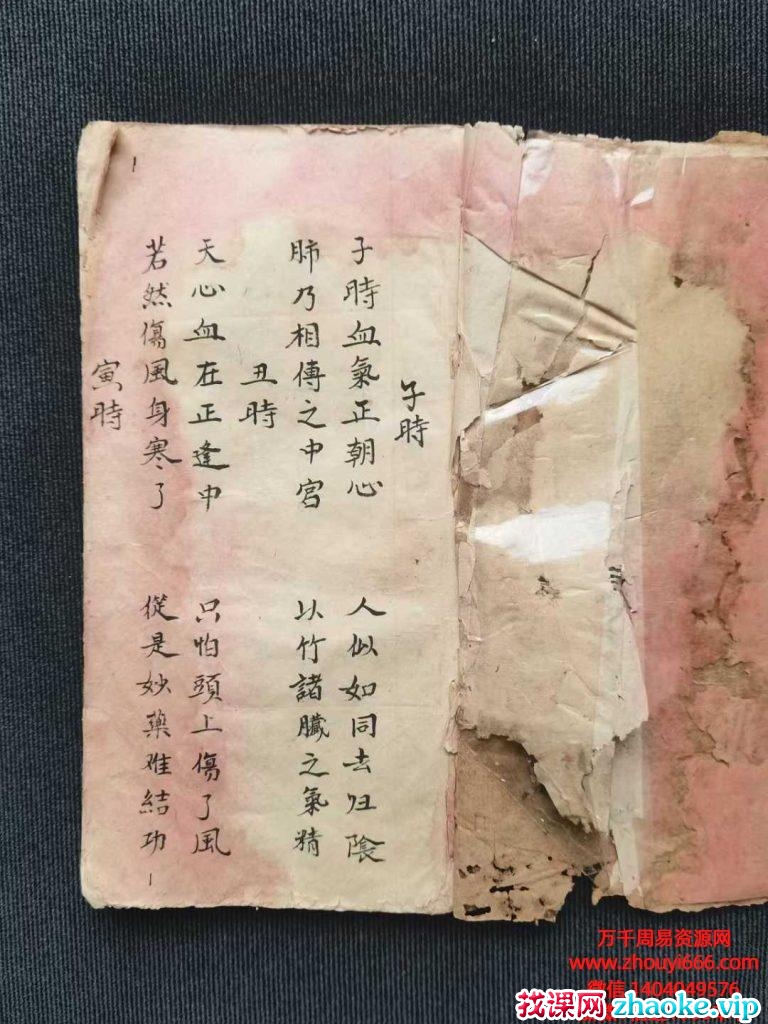 子時
子時血氣正朝心
人似如同去归陰
肺乃相傳之中宮
以竹諸臟之氣精
丑時
天心血在正逢中
只怕頭上傷了風
若然傷風身寒了
從是妙藥难結功
寅時
万千周易资源网
www.zhouyi666.com
微信 1404049576
找课网zhaoke.vip